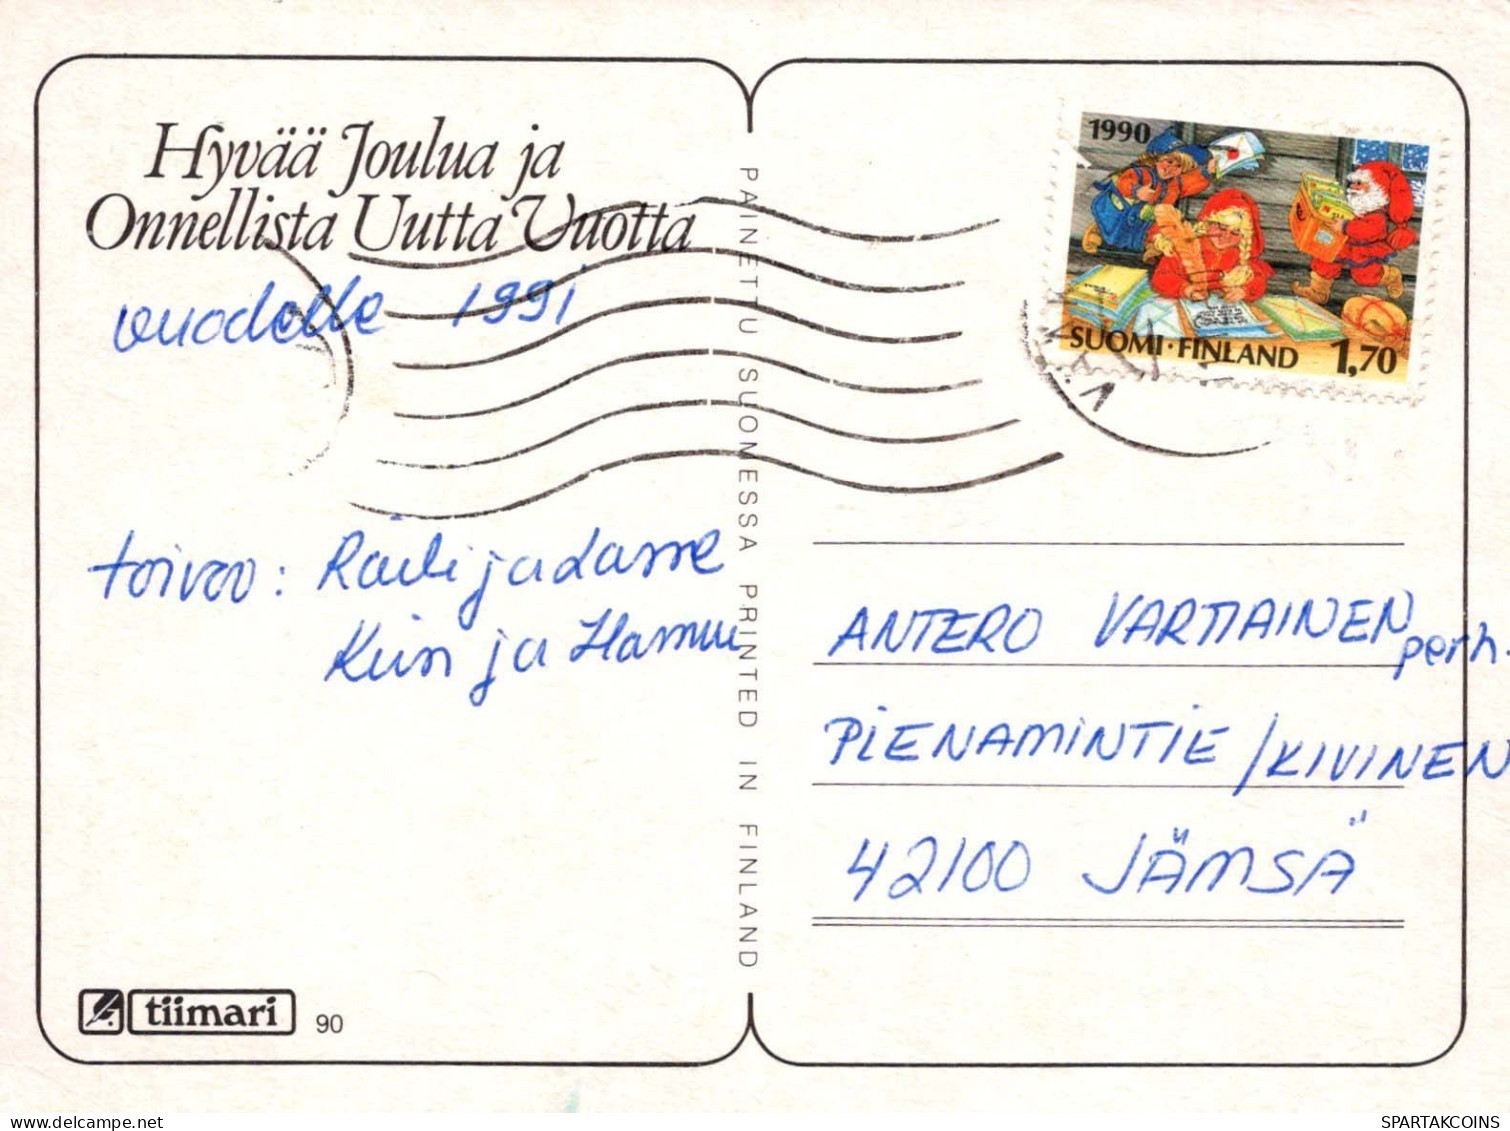 Hyvää Joulua ja
Onnellista Uutta Vuotta
vuodelle 1991
toivoo: Raili ja Lasse
Kirsi ja Hannu
PAINETTU SUOMESSA PRINTED IN FINLAND
tiimari 90
1990
SUOMI·FINLAND 1,70
ANTERO VARTIAINEN perh.
PIENAMINTIE / KIVINEN
42100 JÄMSÄ
SPARTAKCOINS